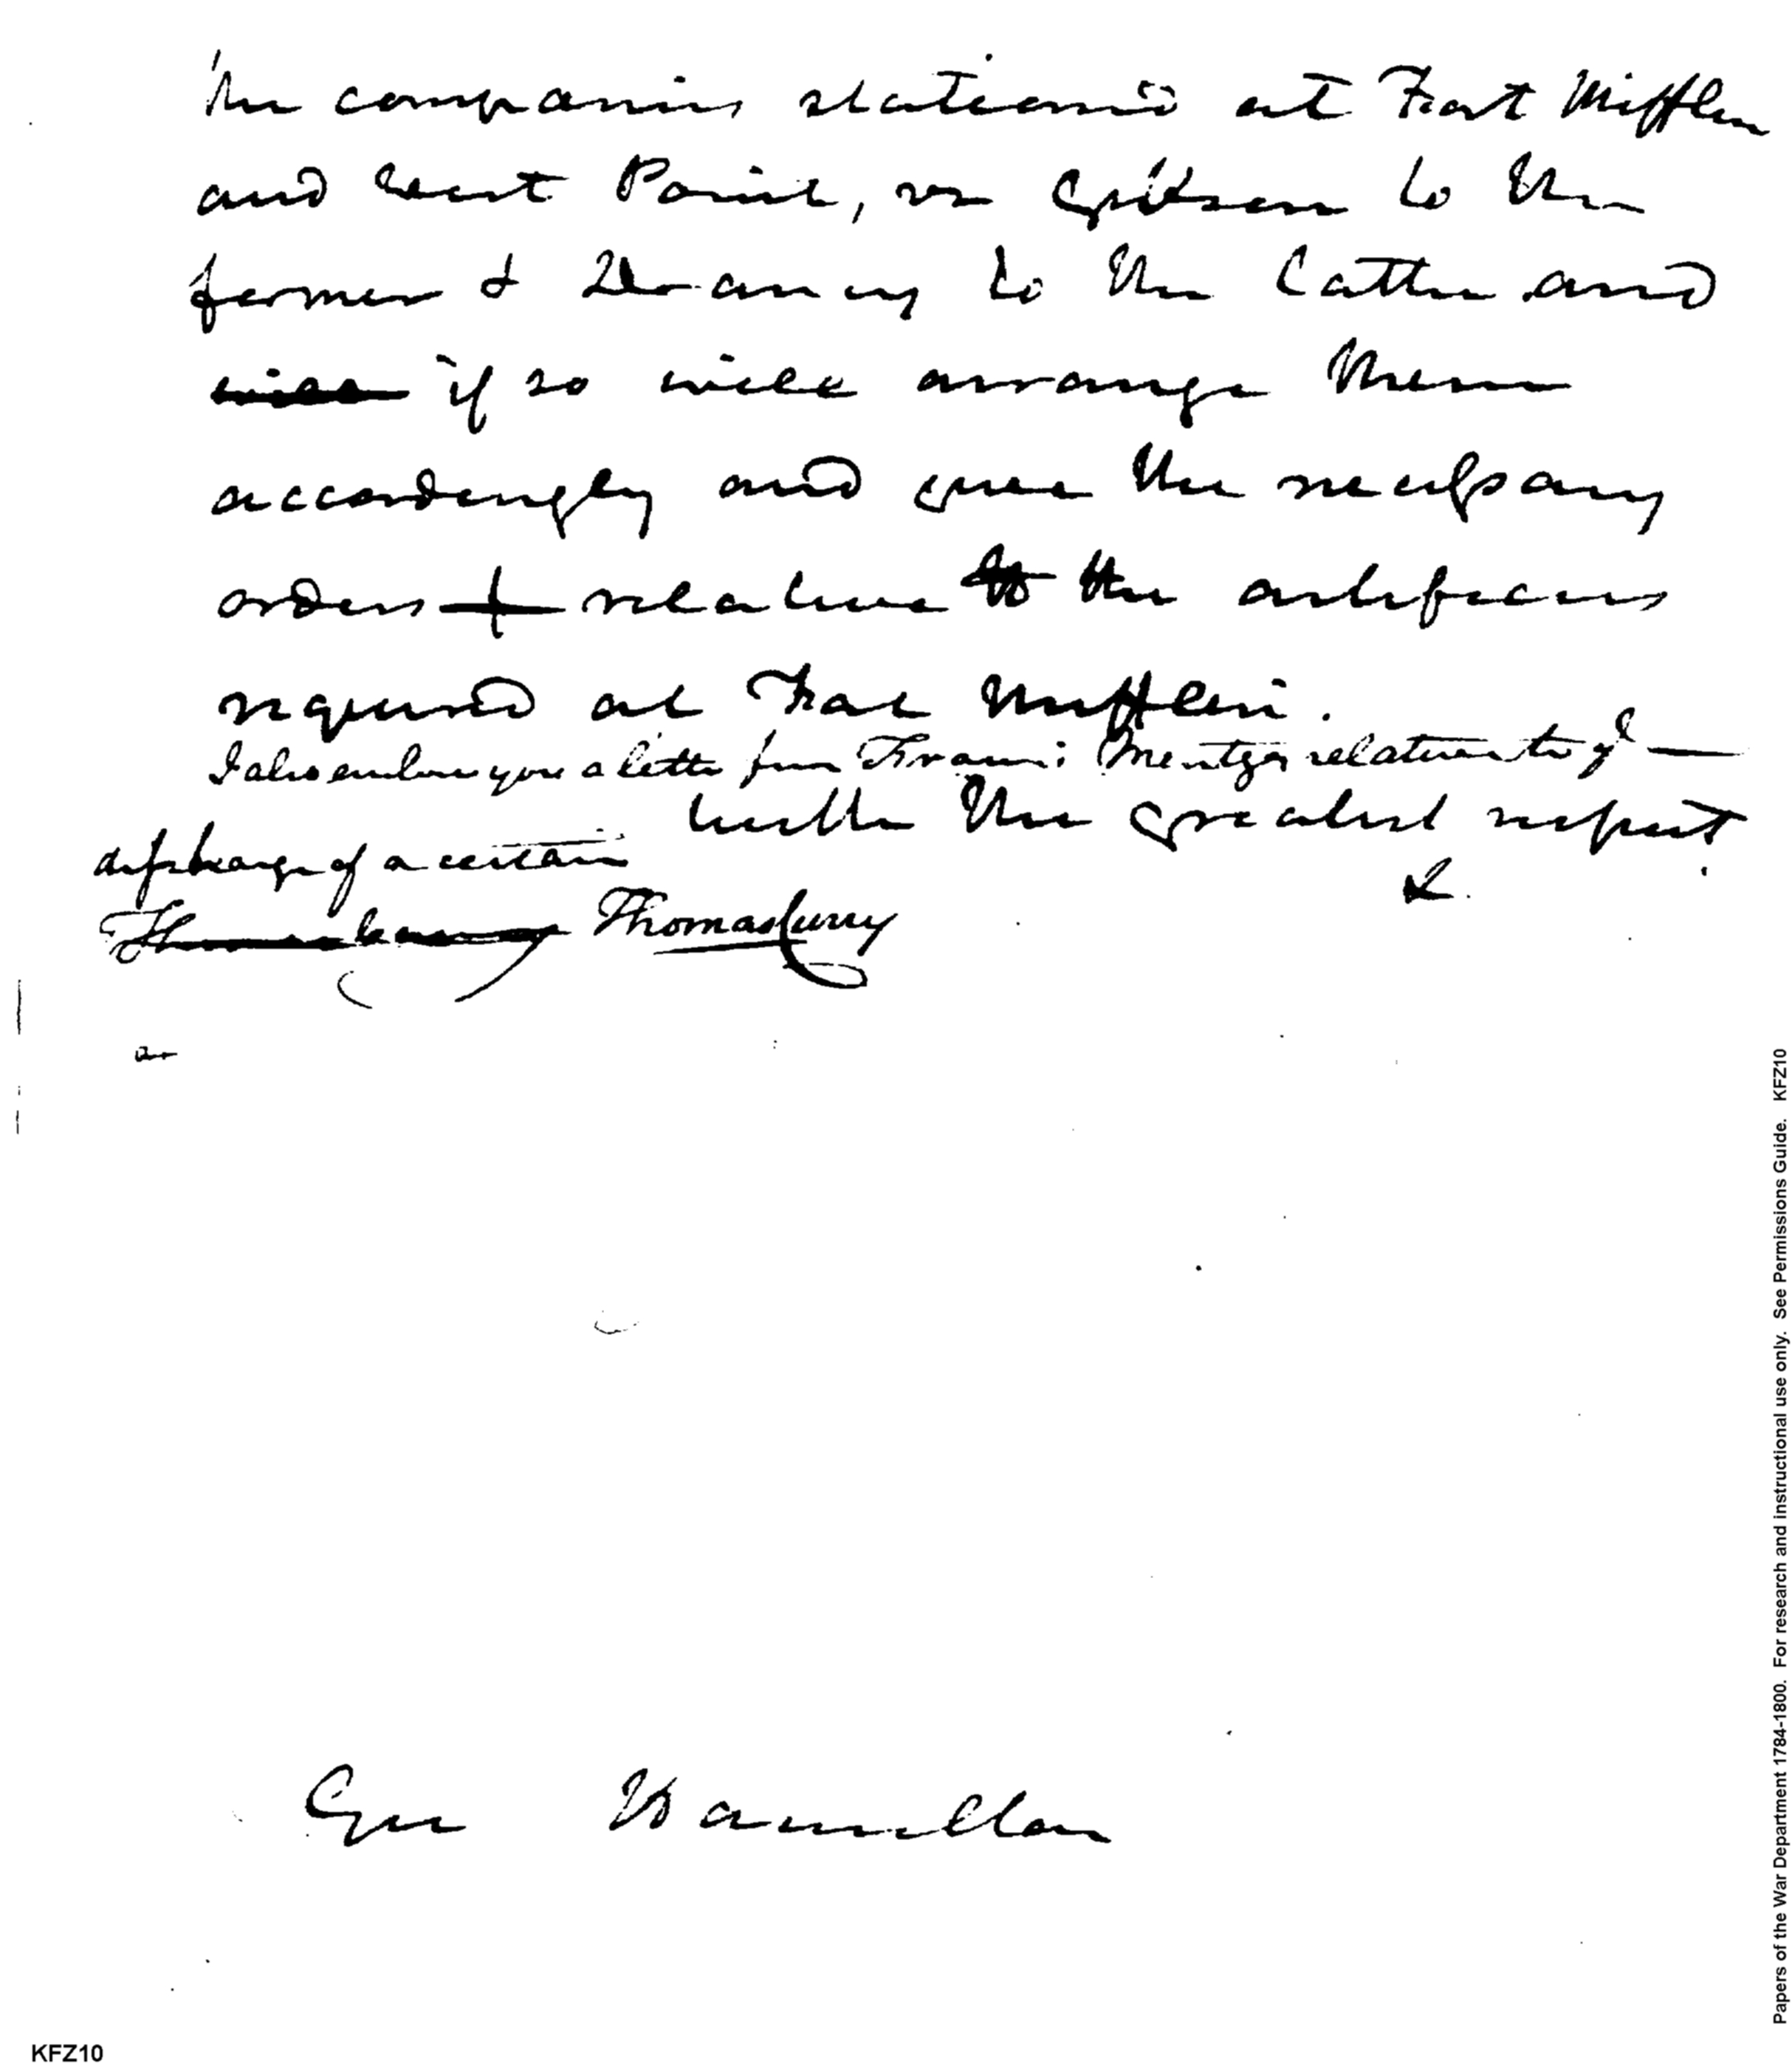 the companies stationed at Fort Mifflin
and West Point, viz Gibson to the
former & to the latter and
will if so will arrange them
accordingly and give the necessary
orders relative to the artificers
required at Fort Mifflin.
I also enclose you a letter from Mentges relative to ye
With the greatest respect
discharge of a certain
&.
Thomas Curry Thomas Curry
Gen Hamilton
KFZ10
Papers of the War Department 1784-1800. For research and instructional use only. See Permissions Guide. KFZ10